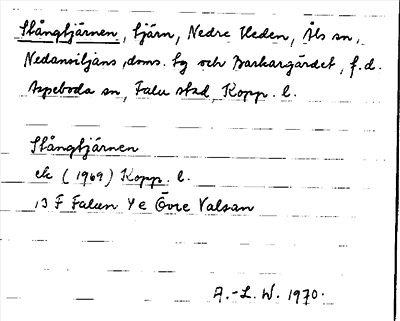 Stångtjärnen, tjärn, Nedre Heden, Åls sn,
Nedansiljans dms. tg och Barkargärdet, f.d.
Aspeboda sn, Falu stad, Kopp. l.
Stångtjärnen
ek (1969) Kopp. l.
13 F Falun 4 e Övre Valsan
A.-L. W. 1970.